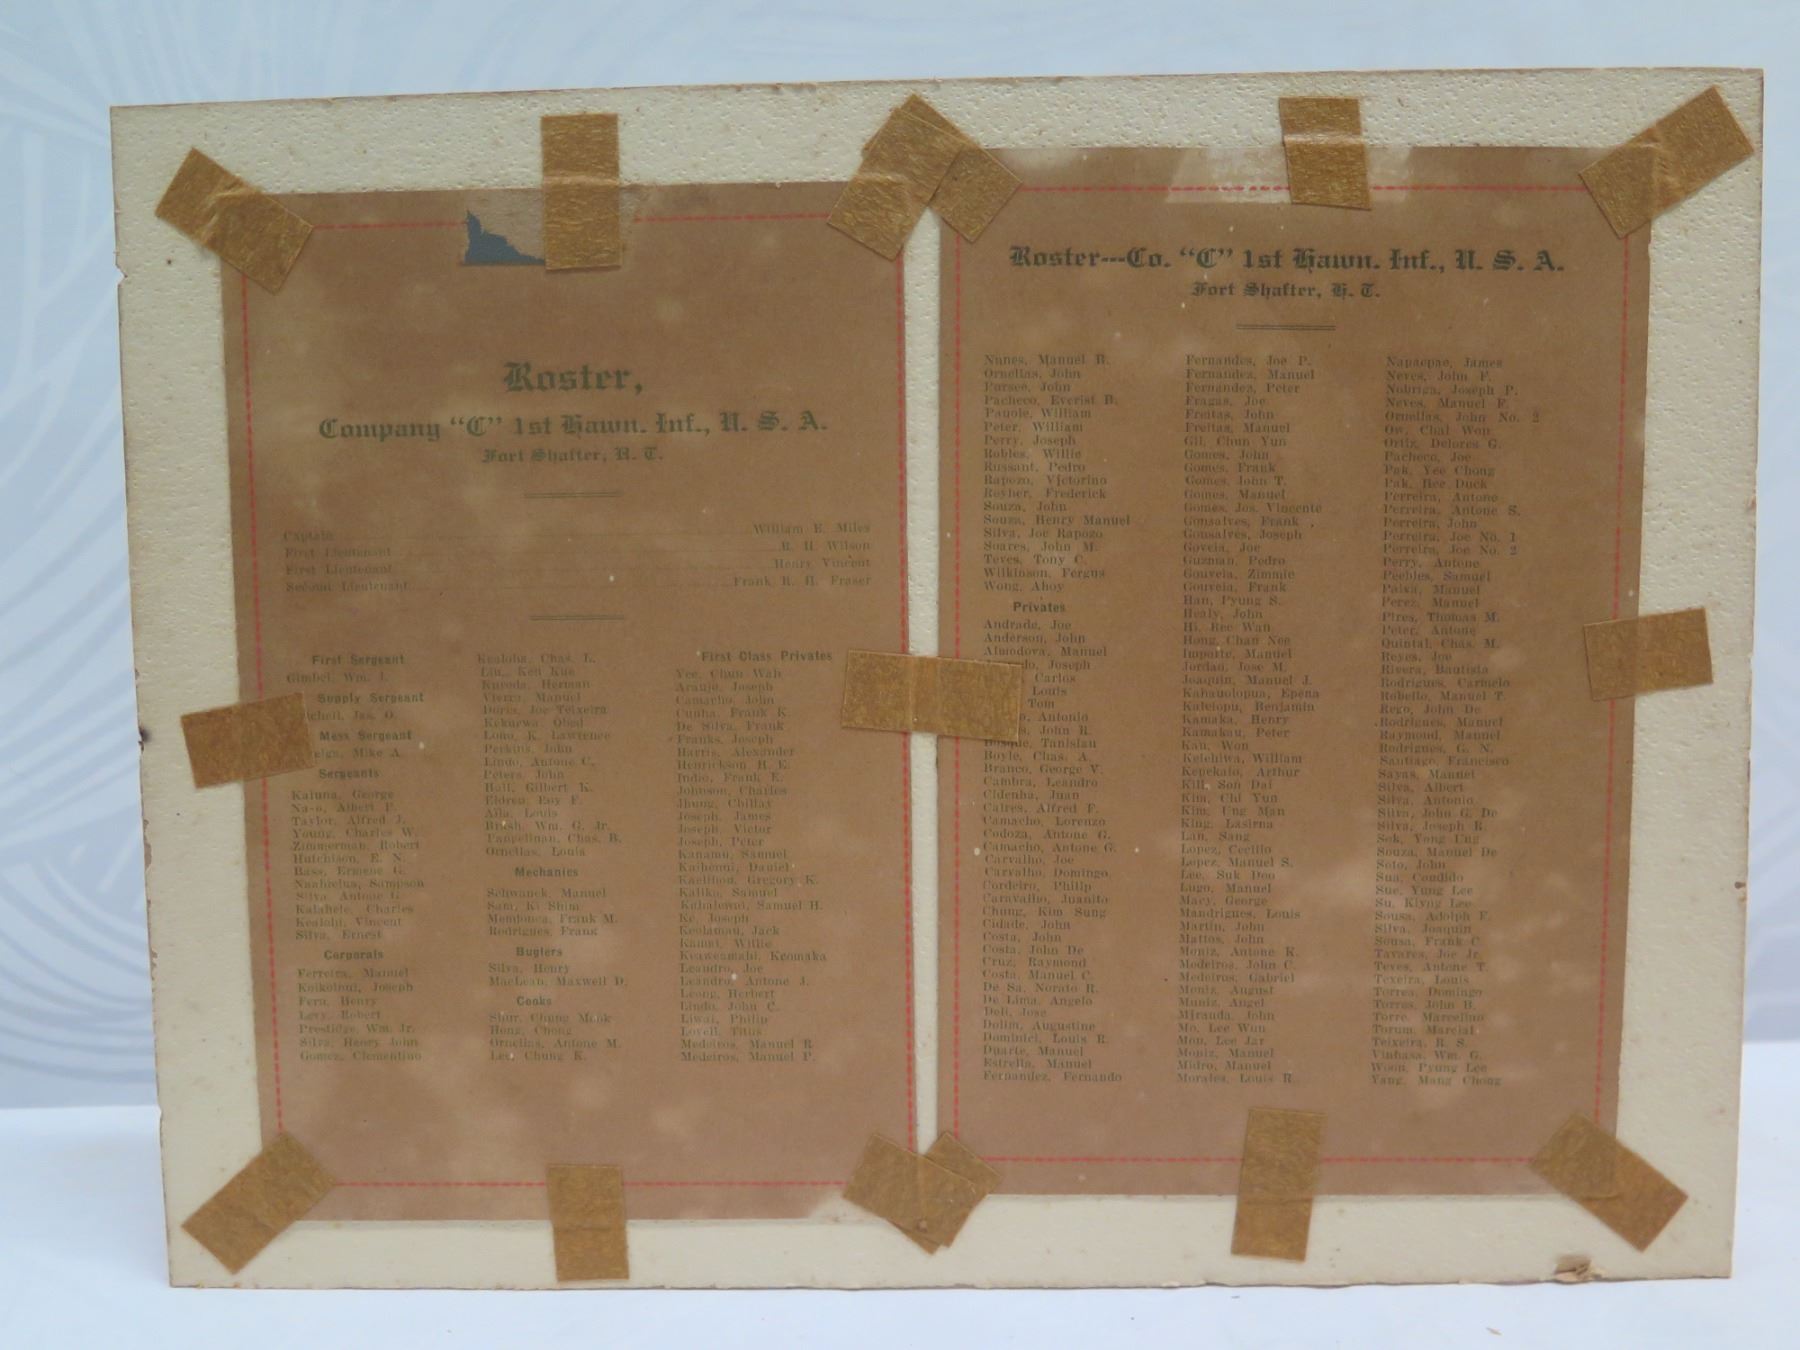 Roster,
Company "C" 1st Hawn. Inf., U. S. A.
Fort Shafter, H. T.
Captain William E. Miles
First Lieutenant R. H. Wilson
First Lieutenant Henry Vincent
Second Lieutenant Frank R. H. Fraser
First Sergeant
Gimbel, Wm. I.
Supply Sergeant
Jas. O.
Mess Sergeant
Mike A.
Sergeants
Kaluna, George
Na-o, Albert P.
Taylor, Alfred J.
Young, Charles W.
Zimmerman, Robert
Hutchison, E. N.
Bass, Ermene G.
Sampson
Silva, Antone G.
Kalahele, Charles
Kealohi, Vincent
Silva, Ernest
Corporals
Ferreira, Manuel
Koikoloni, Joseph
Fern, Henry
Levy, Robert
Prestidge, Wm. Jr.
Silva, Henry John
Gomez, Clementino
Kealoha, Chas. L.
Liu, Ken Kue
Kuroda, Herman
Vierra, Manuel
Doris, Joe Teixeira
Kekuewa, Obed
Lono, K. Lawrence
Perkins, John
Lindo, Antone C.
Peters, John
Hall, Gilbert K.
Eldred, Roy F.
Aila, Louis
Brash, Wm. G. Jr.
Pangelinan, Chas. B.
Ornellas, Louis
Mechanics
Schwanek, Manuel
Sam, Ki Shim
Mendonca, Frank M.
Rodrigues, Frank
Buglers
Silva, Henry
MacLean, Maxwell D.
Cooks
Shur, Chung Mook
Hong, Chong
Ornellas, Antone M.
Lee, Chung K.
First Class Privates
Yee, Chun Wah
Araujo, Joseph
Camacho, John
Cunha, Frank K.
De Silva, Frank
Franks, Joseph
Harris, Alexander
Henrickson, H. E.
Indio, Frank E.
Johnson, Charles
Jhung, Chillay
Joseph, James
Joseph, Victor
Joseph, Peter
Kanamu, Samuel
Kaihenui, Daniel
Kaelihou, Gregory K.
Kaliko, Samuel
Samuel H.
Ke, Joseph
Keolanau, Jack
Kamai, Willie
Keaweamahi, Keomaka
Leandro, Joe
Leandro, Antone J.
Leong, Herbert
Lindo, John C.
Liwai, Philip
Lovell, Titus
Medeiros, Manuel R.
Medeiros, Manuel P.
Roster---Co. "C" 1st Hawn. Inf., U. S. A.
Fort Shafter, H. T.
Nunes, Manuel B.
Ornellas, John
Pursee, John
Pacheco, Everist B.
Pauole, William
Peter, William
Perry, Joseph
Robles, Willie
Russant, Pedro
Rapozo, Victorino
Reyher, Frederick
Souza, John
Souza, Henry Manuel
Silva, Joe Rapozo
Soares, John M.
Teves, Tony C.
Wilkinson, Fergus
Wong, Ahoy
Privates
Andrade, Joe
Anderson, John
Almodova, Manuel
do, Joseph
Carlos
Louis
Tom
Antonio
John R.
Bosque, Tanislau
Boyle, Chas. A.
Branco, George V.
Cambra, Leandro
Cidenha, Juan
Caires, Alfred F.
Camacho, Lorenzo
Codoza, Antone G.
Camacho, Antone G.
Carvalho, Joe
Carvalho, Domingo
Cordeiro, Philip
Caravalho, Juanito
Chung, Kim Sung
Cidade, John
Costa, John
Costa, John De
Cruz, Raymond
Costa, Manuel C.
De Sa, Norato R.
De Lima, Angelo
Deli, Jose
Dolim, Augustine
Dominici, Louis R.
Duarte, Manuel
Estrella, Manuel
Fernandez, Fernando
Fernandes, Joe P.
Fernandez, Manuel
Fernandez, Peter
Fragas, Joe
Freitas, John
Freitas, Manuel
Gil, Chun Yun
Gomes, John
Gomes, Frank
Gomes, John T.
Gomes, Manuel
Gomes, Jos. Vincente
Gonsalves, Frank
Gonsalves, Joseph
Goveia, Joe
Guzman, Pedro
Gouveia, Zimmie
Gouveia, Frank
Han, Pyung S.
Healy, John
Hi, Ree Wan
Hong, Chan Nee
Importe, Manuel
Jordan, Jose M.
Joaquin, Manuel J.
Kahauolopua, Epena
Kaleiopu, Benjamin
Kamaka, Henry
Kamakau, Peter
Kau, Won
Kelehiwa, William
Kepekaio, Arthur
Kill, Son Dai
Kim, Chi Yun
Kim, Ung Man
King, Lasirna
Lan, Sang
Lopez, Cecilio
Lopez, Manuel S.
Lee, Suk Doo
Lugo, Manuel
Macy, George
Mandrigues, Louis
Martin, John
Mattos, John
Moniz, Antone K.
Medeiros, John C.
Medeiros, Gabriel
Moniz, August
Muniz, Angel
Miranda, John
Mo, Lee Wun
Mon, Lee Jar
Moniz, Manuel
Midro, Manuel
Morales, Louis R.
Napaepae, James
Neves, John F.
Nobriga, Joseph P.
Neves, Manuel F.
Ornellas, John No. 2
Ow, Chai Won
Ortiz, Delores G.
Pacheco, Joe
Pak, Yee Chong
Pak, Hee Duck
Perreira, Antone
Perreira, Antone S.
Perreira, John
Perreira, Joe No. 1
Perreira, Joe No. 2
Perry, Antone
Peebles, Samuel
Paiva, Manuel
Perez, Manuel
Pires, Thomas M.
Peter, Antone
Quintal, Chas. M.
Reyes, Joe
Rivera, Bautista
Rodrigues, Carmelo
Robello, Manuel T.
Rego, John De
Rodrigues, Manuel
Raymond, Manuel
Rodrigues, G. N.
Santiago, Francisco
Sayas, Manuel
Silva, Albert
Silva, Antonio
Silva, John G. De
Silva, Joseph R.
Sok, Yong Ung
Souza, Manuel De
Soto, John
Sua, Condido
Sue, Yung Lee
Su, Kiyng Lee
Sousa, Adolph F.
Silva, Joaquin
Sousa, Frank C.
Tavares, Joe Jr.
Teves, Antone T.
Texeira, Louis
Torrea, Domingo
Torres, John B.
Torre, Marcelino
Torum, Marcial
Teixeira, R. S.
Vinhasa, Wm. G.
Woon, Pyung Lee
Yang, Mang Chong